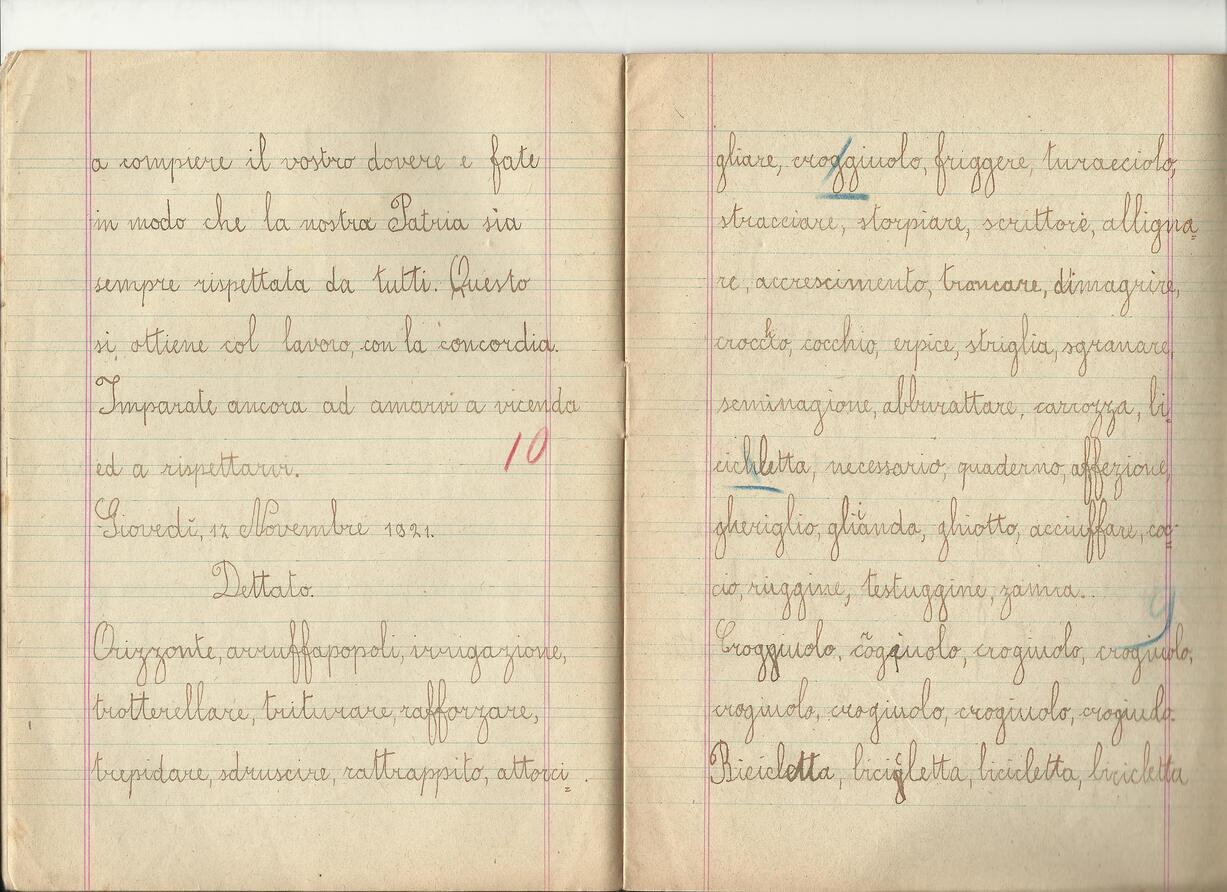 a compiere il vostro dovere e fate
in modo che la nostra Patria sia
sempre rispettata da tutti. Questo
si ottiene col lavoro, con la concordia.
Imparate ancora ad amarvi a vicenda
ed a rispettarvi.
10
Giovedì, 12 Novembre 1921.
Dettato.
Orizzonte, arruffapopoli, irrigazione,
trotterellare, triturare, rafforzare,
trepidare, sdruscire, rattrappito, attorci=
gliare, croggiuolo, friggere, turacciolo,
stracciare, storpiare, scrittore, alligna=
re, accrescimento, troncare, dimagrire,
crocchio, cocchio, erpice, striglia, sgranare,
seminagione, abburattare, carrozza, bi=
cichletta, necessario, quaderno, affezione,
gheriglio, ghianda, ghiotto, acciuffare, coc=
cio, ruggine, testuggine, zanna.
9
Croggiuolo, crogiuolo, crogiuolo, crogiuolo,
crogiuolo, crogiuolo, crogiuolo, crogiuolo.
Bicicletta, bicicletta, bicicletta, bicicletta